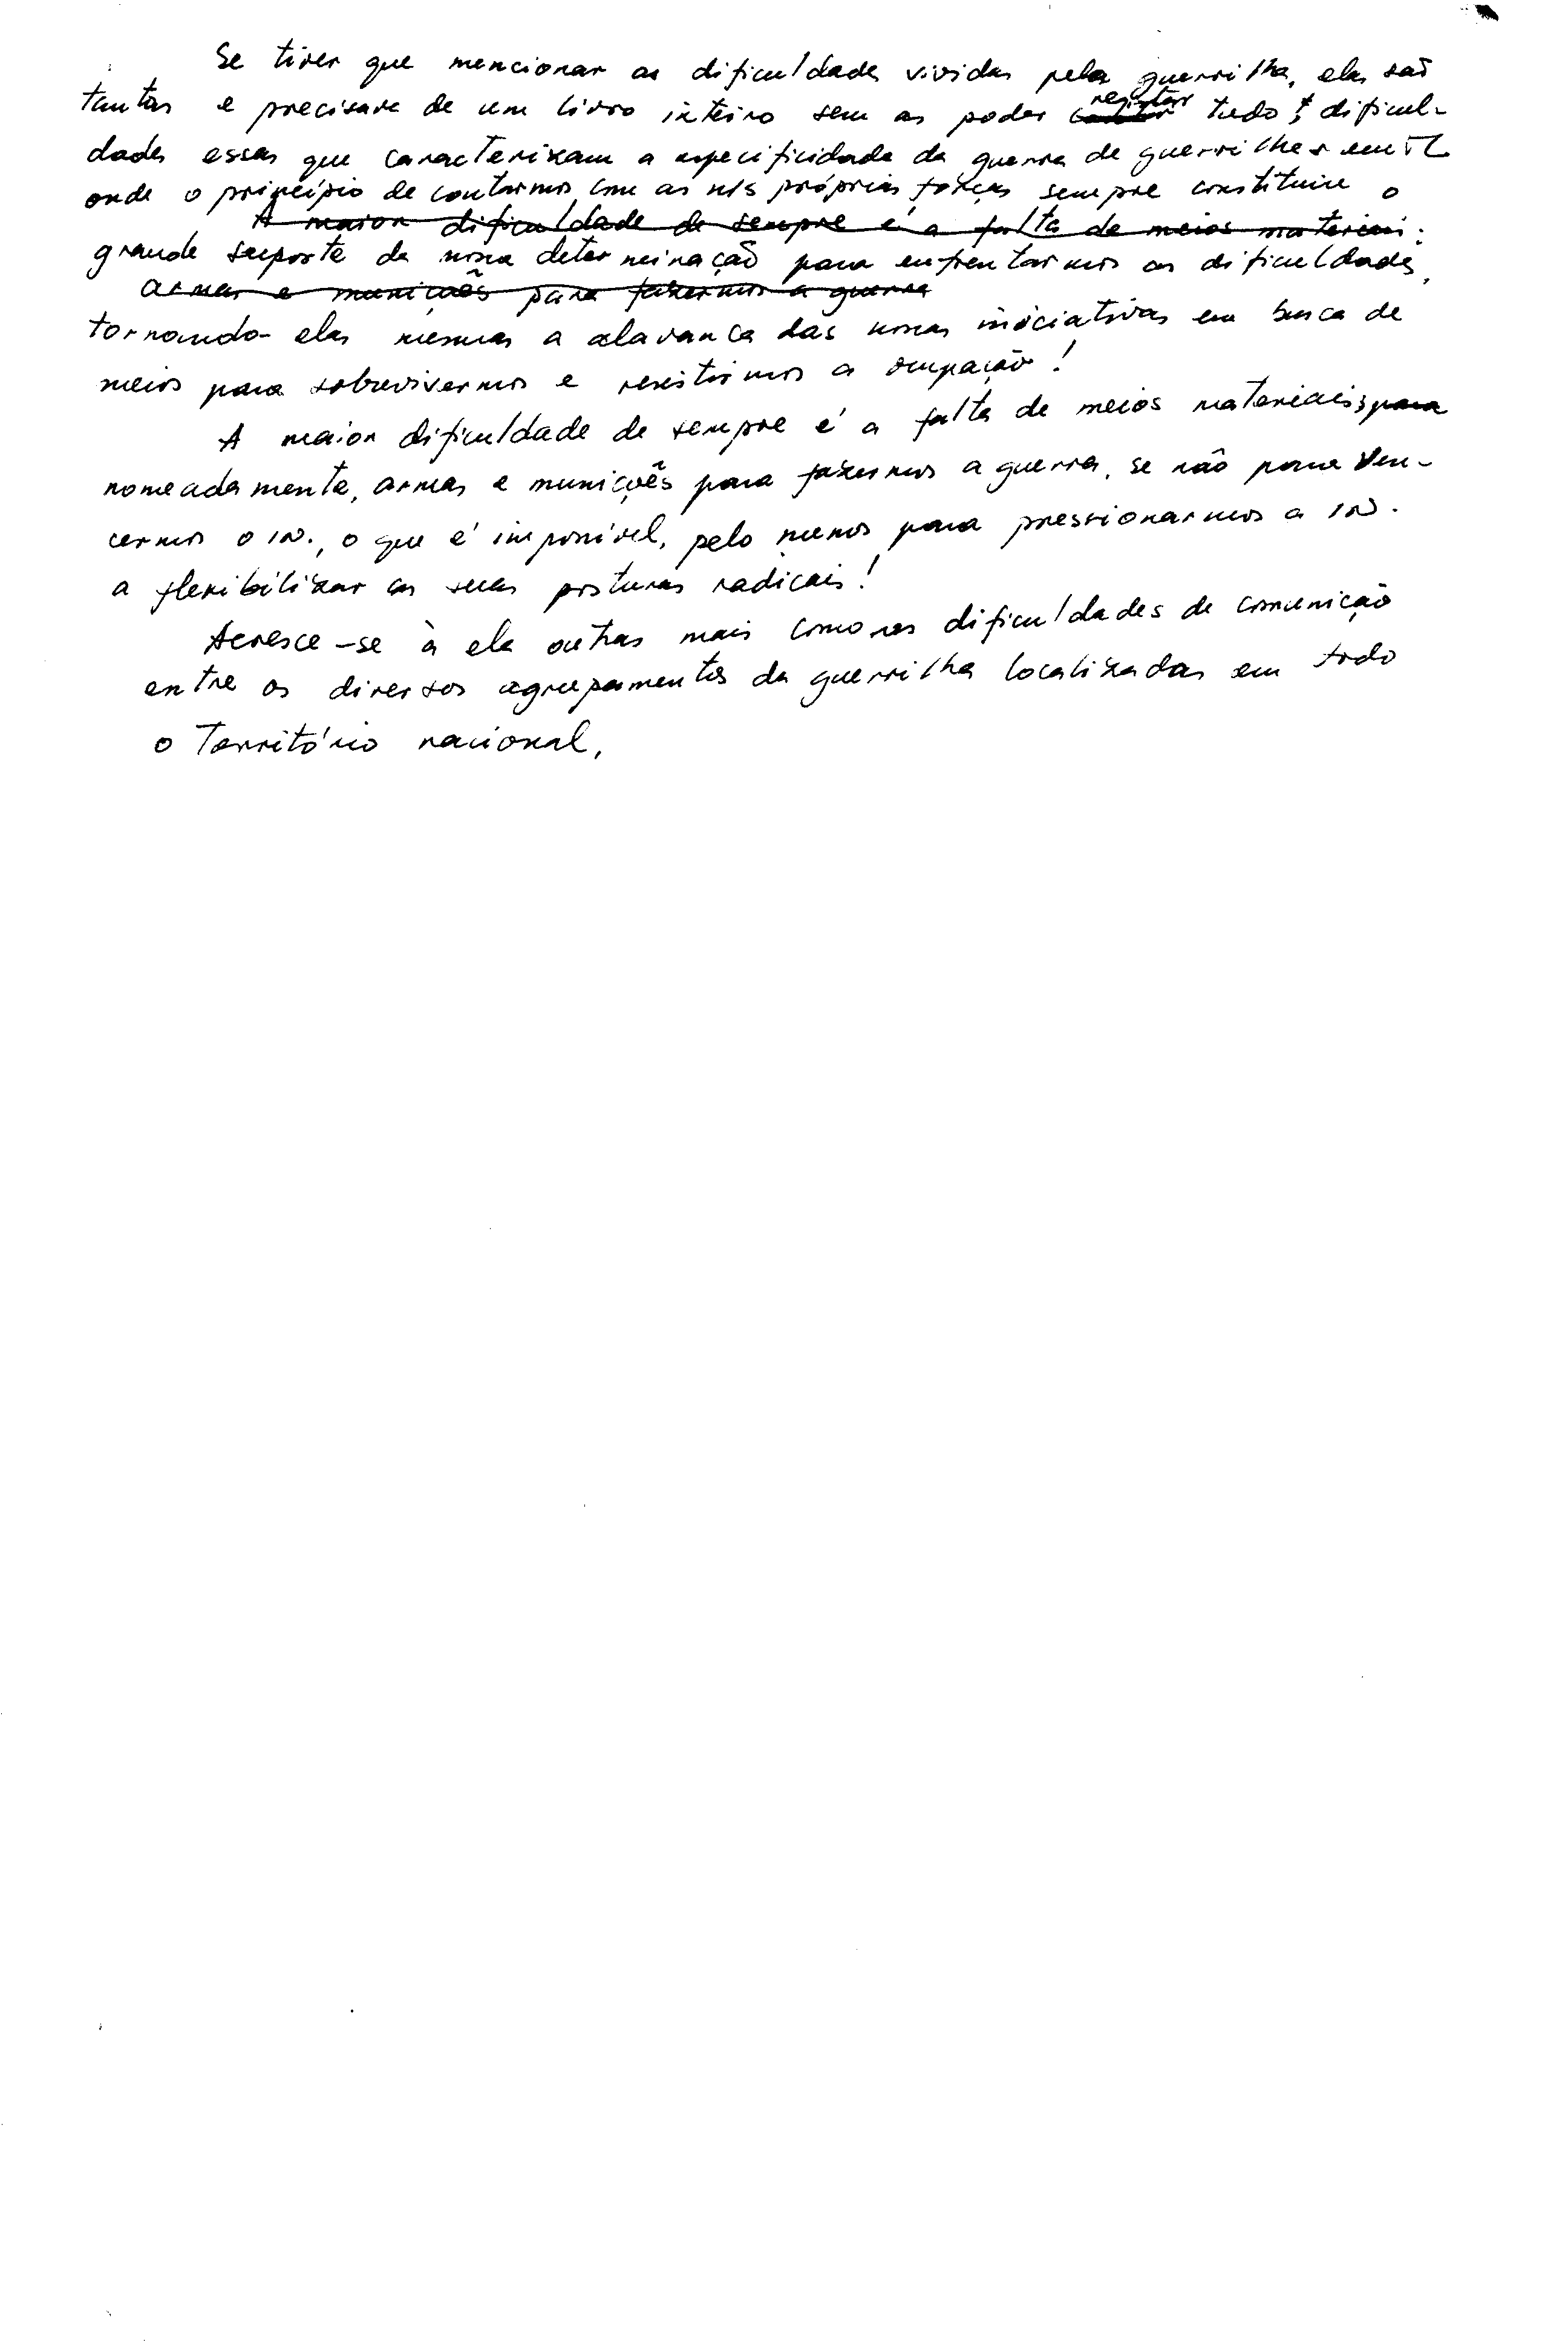 Se tiver que mencionar as dificuldades vividas pela guerrilha, elas são
tantas e precisare de um livro inteiro sem as poder registar tudo; dificul-
dades essas que caracterizam a especificidade da guerra de guerrilhas em TL
onde o princípio de contarmos com as n/s próprias forças sempre constituiu o
A maior dificuldade de sempre é a falta de meios materiais:
grande suporte da nossa determinação para enfrentarmos as dificuldades,
armas e munições para fazermos a guerra
tornando-elas mesmas a alavanca das nossas iniciativas em busca de
meios para sobrevivermos e resistirmos a ocupação!
A maior dificuldade de sempre é a falta de meios materiais, para
nomeadamente, armas e munições para fazermos a guerra, se não para ven-
cermos o IN., o que é impossível, pelo menos para pressionarmos a IN.
a flexibilizar as suas posturas radicais!
Acresce-se à ela outras mais como as dificuldades de comunição
entre os diversos agrupamentos da guerrilha localizadas em todo
o Território nacional,